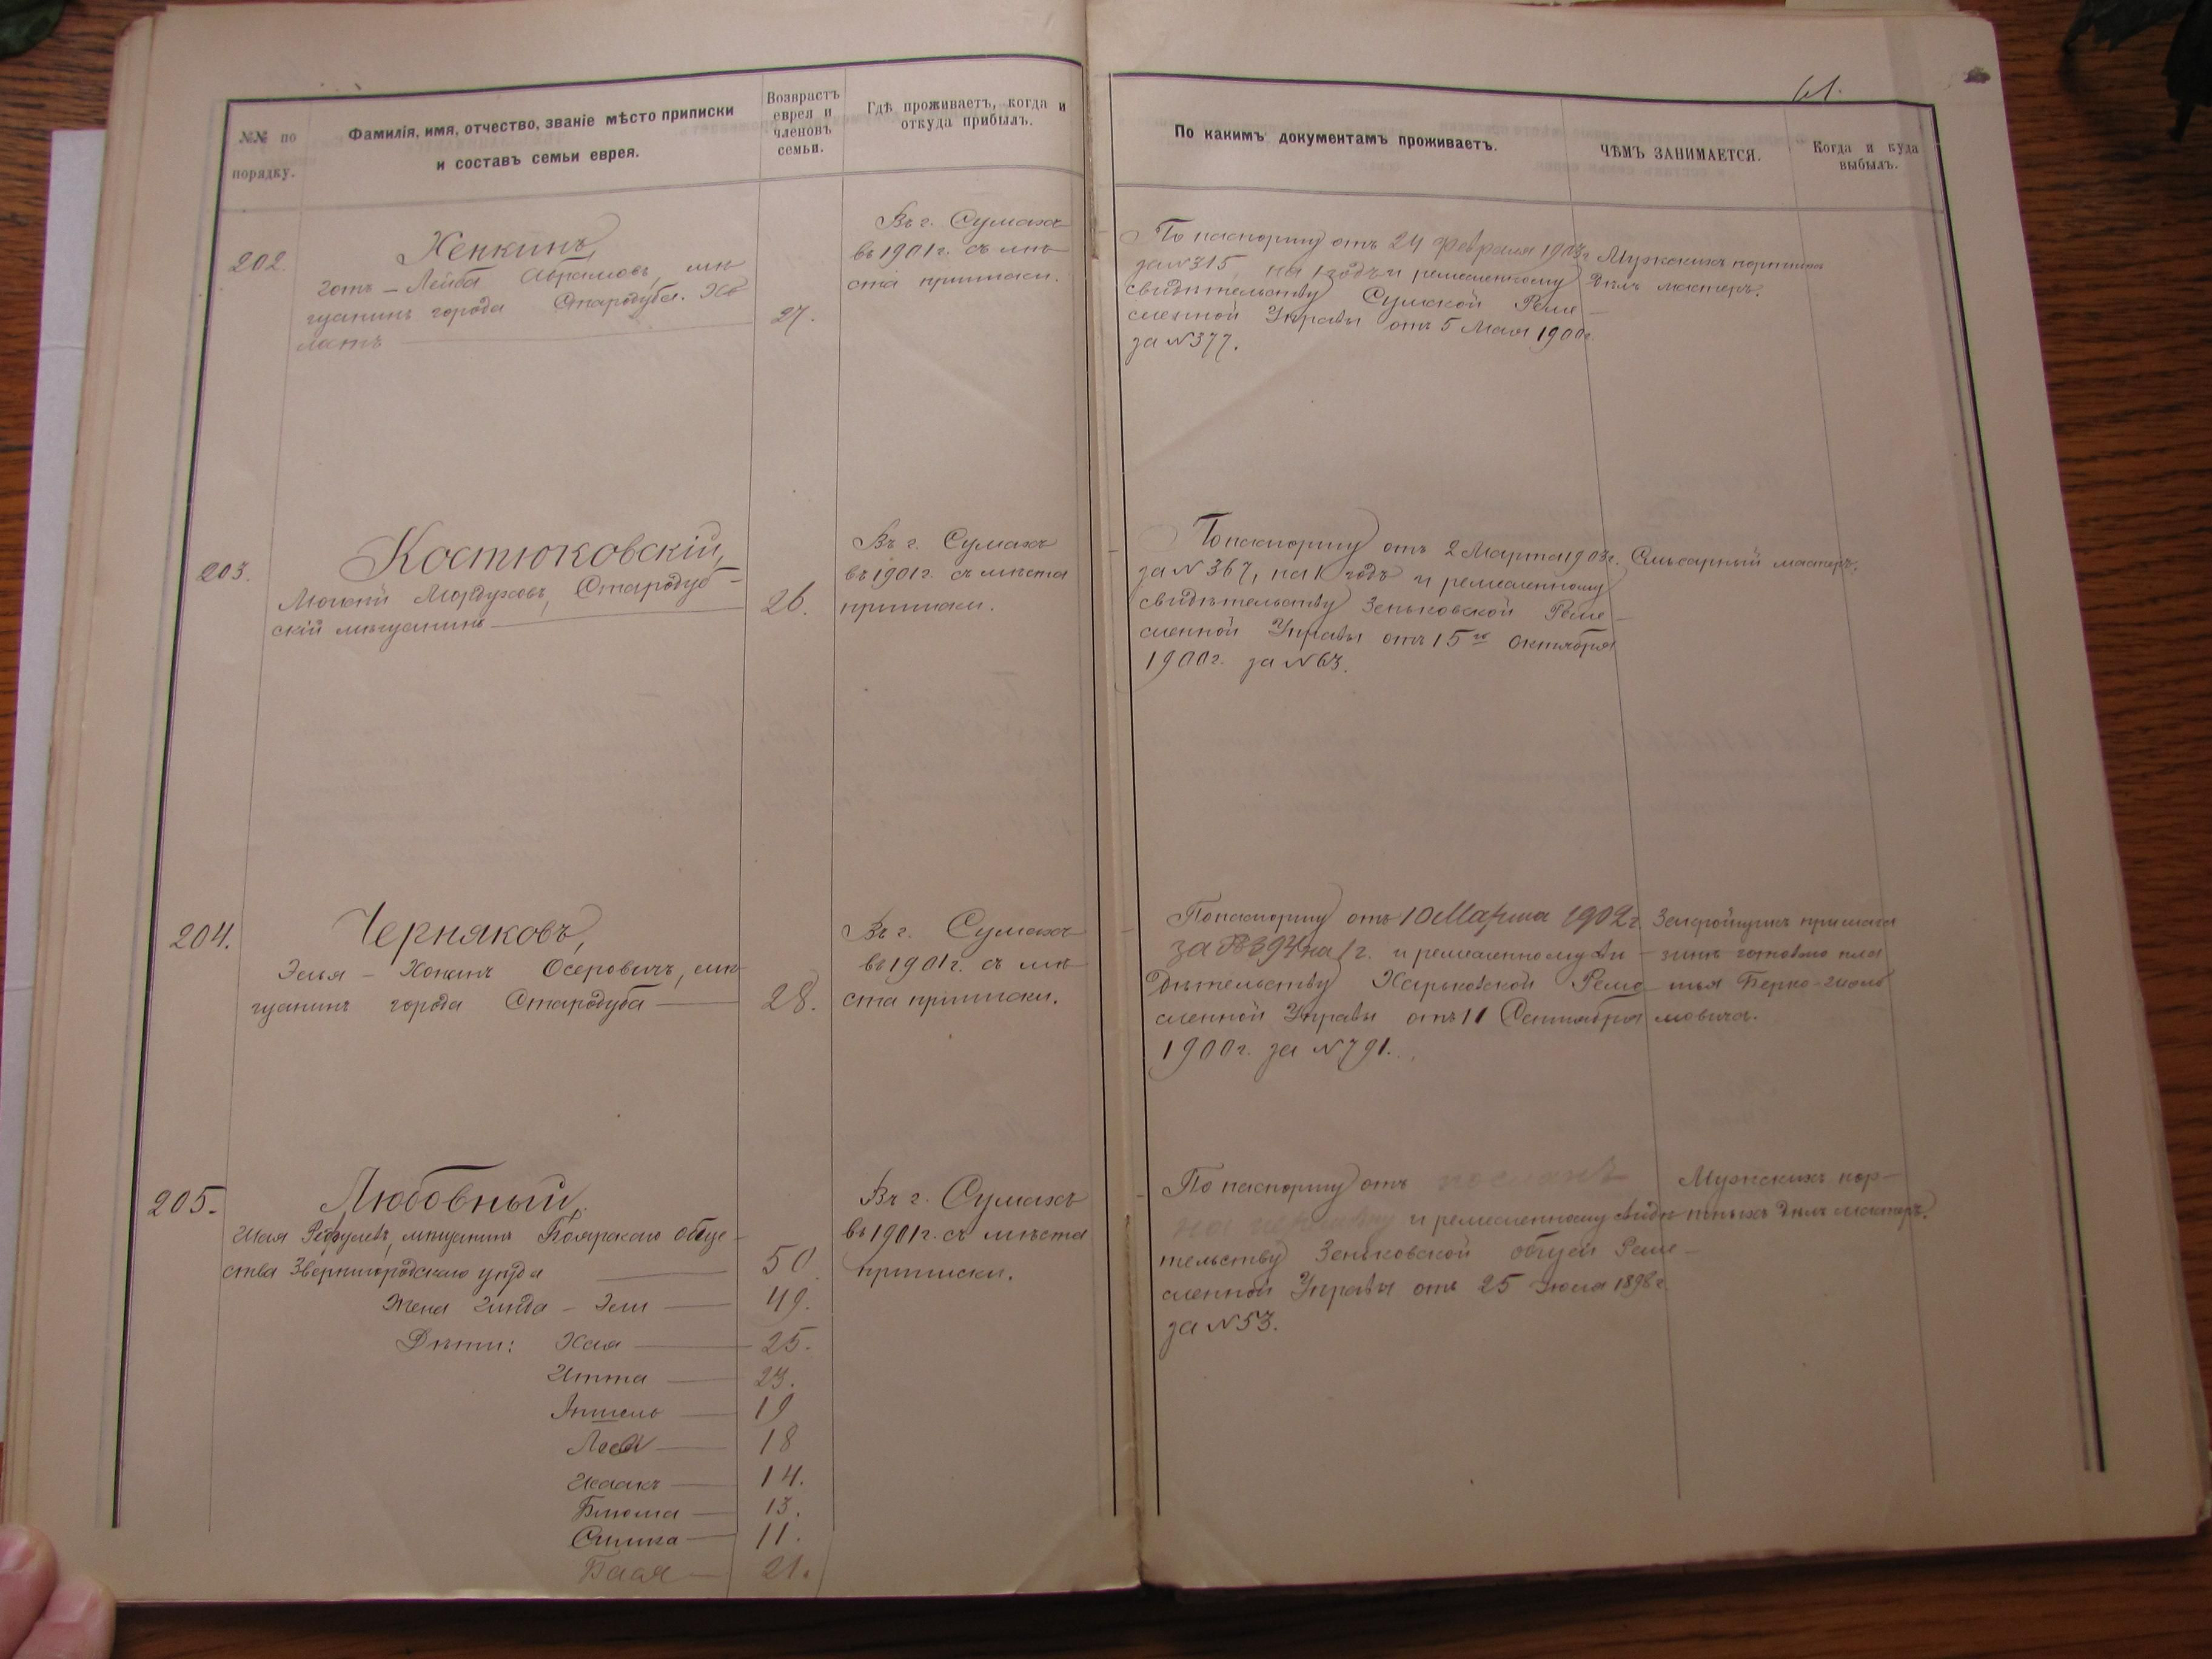 61.
№№ по
порядку.
Фамилія, имя, отчество, званіе мѣсто приписки
и составъ семьи еврея.
Возврастъ
еврея и
членовъ
семьи.
Гдѣ проживаетъ, когда и
откуда прибылъ.
По какимъ документамъ проживаетъ.
ЧѢМЪ ЗАНИМАЕТСЯ.
Когда и куда
выбылъ.
202.
Хенкинъ,
Лейба Абрамовъ, мѣ
щанинъ города Стародуба. Хо
лостъ
27.
Въ г. Сумахъ
въ 1901 г. съ мѣ
ста приписки.
По паспорту отъ 24 Февраля 1903 г
за № 315, на 1 годъ и ремесленному
свидѣтельству Сумской Реме
сленной Управы отъ 5 Мая 1900 г.
за № 377.
Мужскихъ портныхъ
дѣлъ мастеръ.
203.
Костюковскій,
Мордуховъ, Стародуб
скій мѣщанинъ
26.
Въ г. Сумахъ
въ 1901 г. съ мѣста
приписки.
По паспорту отъ 2 Марта 1903 г.
за № 367, на 1 годъ и ремесленному
свидѣтельству Зеньковской Реме
сленной Управы отъ 15го Октября
1900 г. за № 63.
Слесарный мастеръ.
204.
Черняковъ,
Эля - Хонанъ Осеровичъ, мѣ
щанинъ города Стародуба
28.
Въ г. Сумахъ
въ 1901 г. съ мѣ
ста приписки.
По паспорту отъ 10 Марта 1902 г.
за № 394 на 1 г. и ремесленному сви
дѣтельству Харьковской Реме
сленной Управы отъ 11 Сентября
1900 г. за № 791.
Закройщикъ при мага
зинѣ готоваго пла
тья Берко-
мовича.
205.
Любовный,
Шая мѣщанинъ Боярскаго обще
ства Звенигородскаго уѣзда
50
Жена Гинда -
49.
Дѣти: Хая
25.
Итта
23.
19
18
Исаакъ
14.
Блюма
13.
Симка
11.
Бася
21.
Въ г. Сумахъ
въ 1901 г. съ мѣста
приписки.
По паспорту отъ
и ремесленному свидѣ
тельству Зеньковской общей Реме
сленной Управы отъ 25 Іюля 1898 г.
за № 53.
Мужскихъ пор
тныхъ дѣлъ мастеръ.